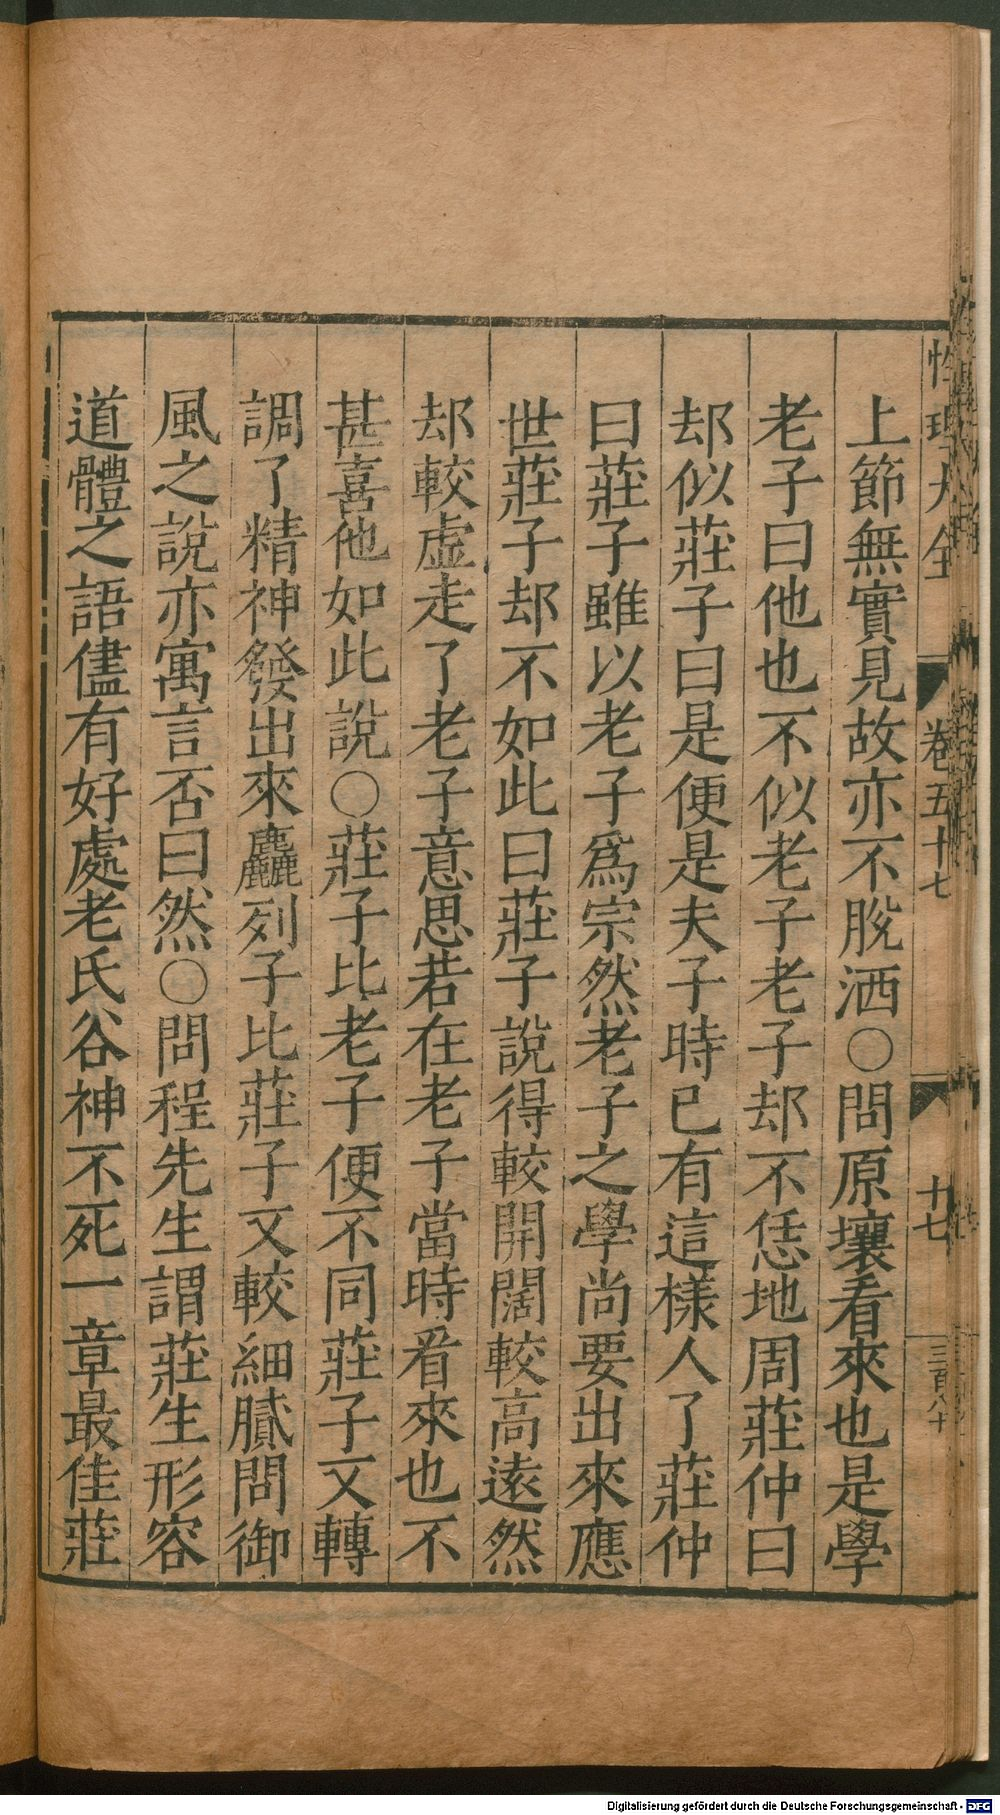 性理大全 卷五十七 十七 三百八十
上節無實見故亦不脫洒○問原壤看來也是學
老子曰他也不似老子老子却不恁地周莊仲曰
却似莊子曰是便是夫子時已有這樣人了莊仲
曰莊子雖以老子爲宗然老子之學尚要出來應
世莊子却不如此曰莊子說得較開闊較高遠然
却較虛走了老子意思若在老子當時看來也不
甚喜他如此說○莊子比老子便不同莊子又轉
調了精神發出來麤列子比莊子又較細膩問御
風之說亦寓言否曰然○問程先生謂莊生形容
道體之語儘有好處老氏谷神不死一章最佳莊
Digitalisierung gefördert durch die Deutsche Forschungsgemeinschaft - DFG